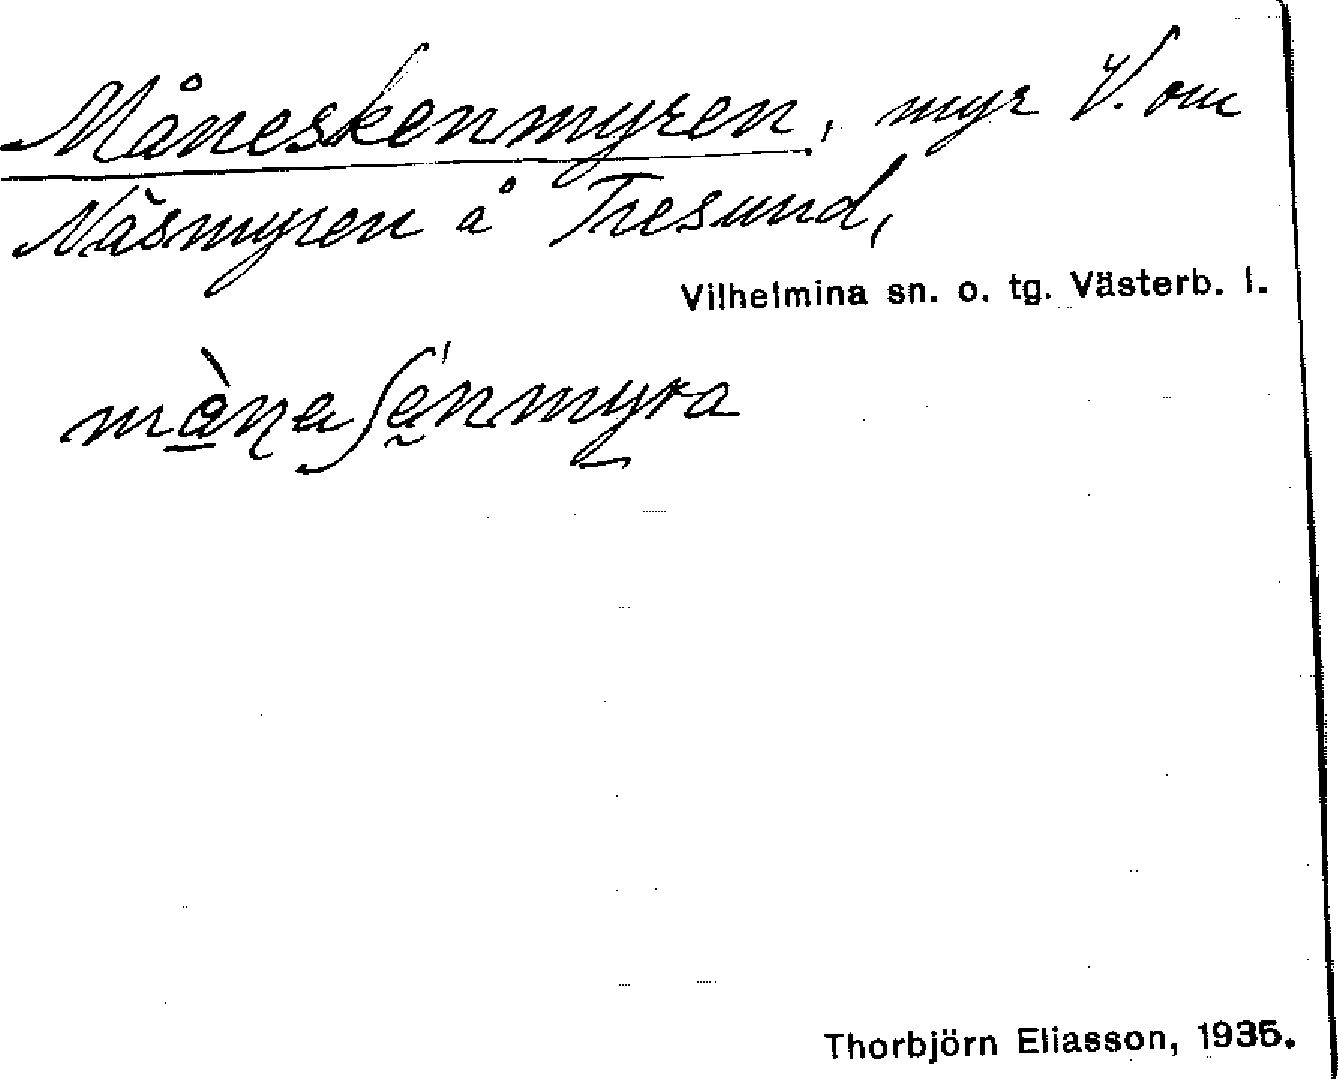 Måneskenmyren, myr V. om
Näsmyren å Tresund,
Vilhelmina sn. o. tg. Västerb. l.
Thorbjörn Eliasson, 1935.